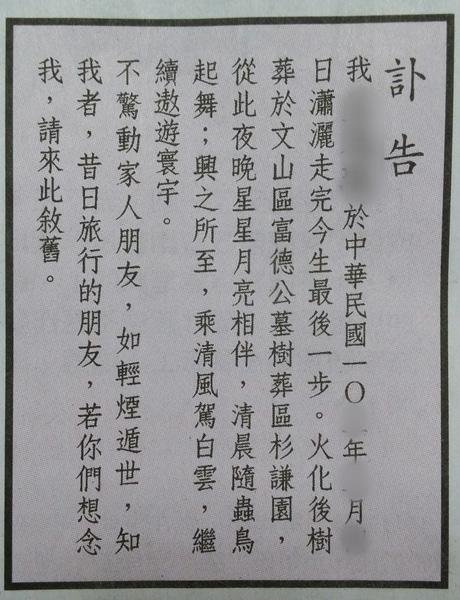 訃告
我 於中華民國一〇 年 月
日瀟灑走完今生最後一步。火化後樹
葬於文山區富德公墓樹葬區杉謙園，
從此夜晚星星月亮相伴，清晨隨蟲鳥
起舞；興之所至，乘清風駕白雲，繼
續遨遊寰宇。
不驚動家人朋友，如輕煙遁世，知
我者，昔日旅行的朋友，若你們想念
我，請來此敘舊。